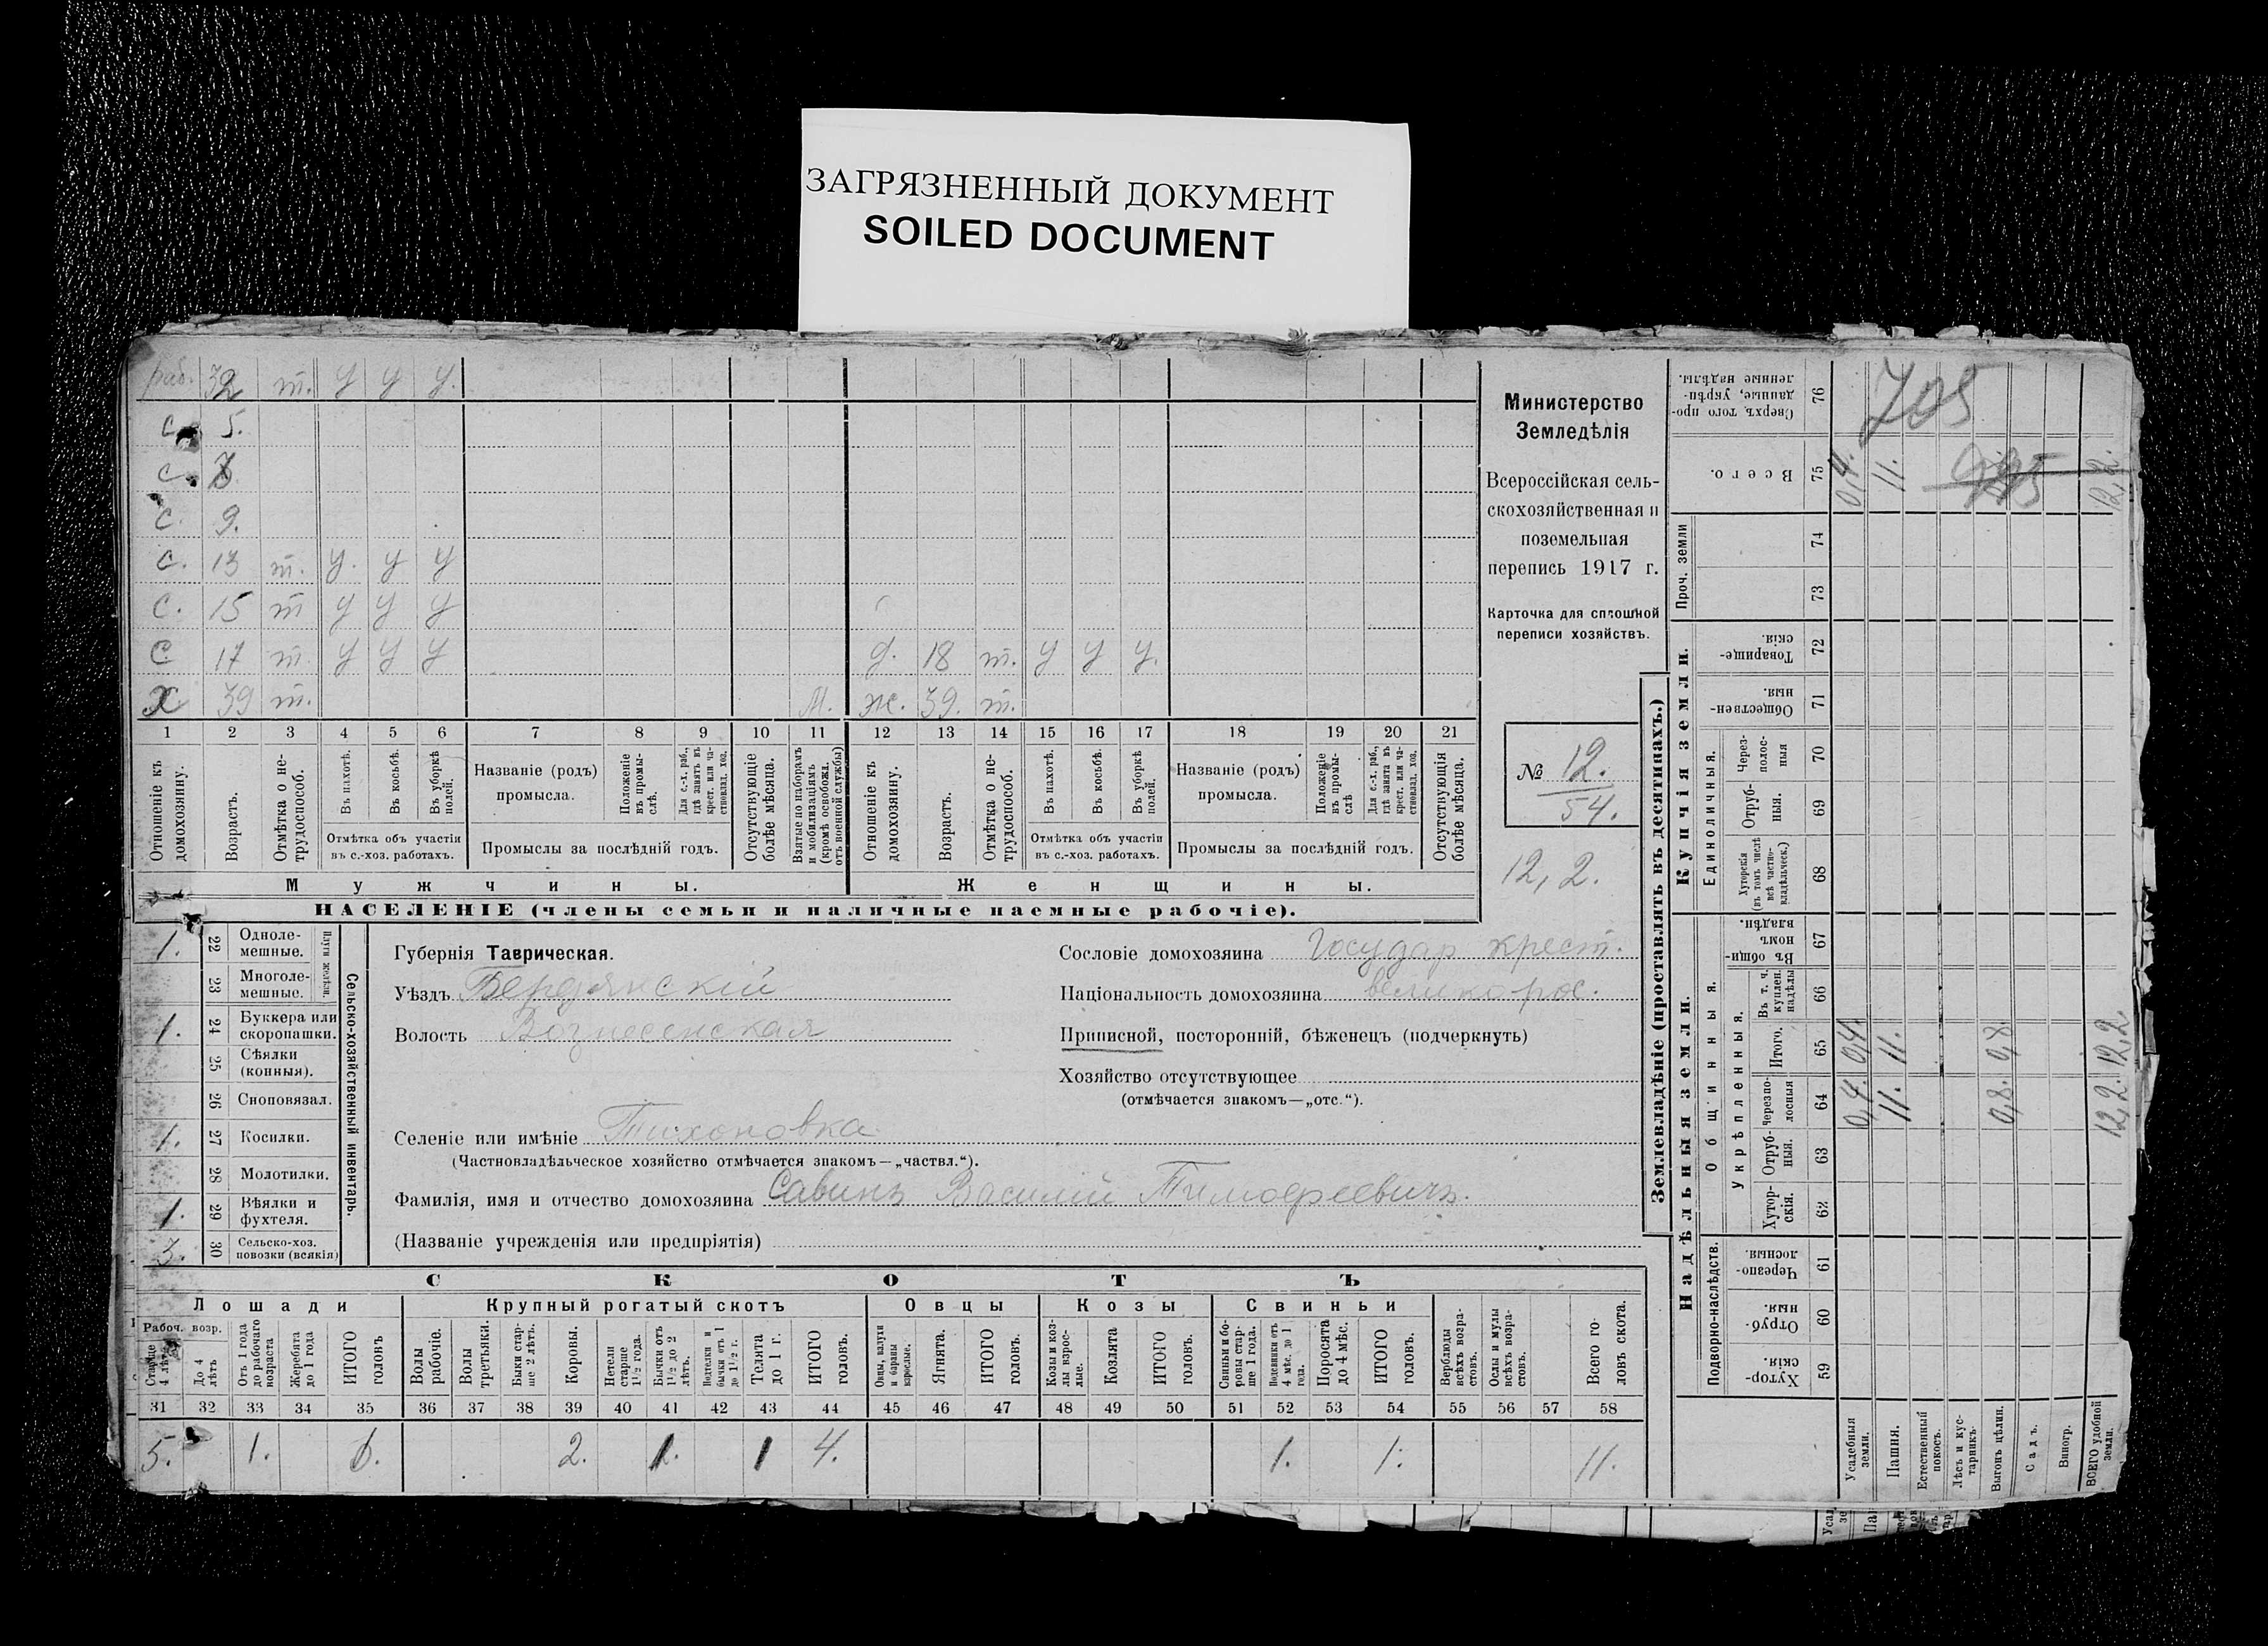 ЗАГРЯЗНЕННЫЙ ДОКУМЕНТ
SOILED DOCUMENT
раб. 32 т. у у у.
с. 5.
с.
с. 9.
с. 13 т. у. у у
с. 15 т у у у
с 17 т. у у у д. 18 т. у у у.
х 39 т. М. ж. 39. т.
1 2 3 4 5 6 7 8 9 10 11 12 13 14 15 16 17 18 19 20 21
Отношеніе къ домохозяину.
Возрастъ.
Отмѣтка о не-трудоспособ.
Въ пахотѣ.
Въ косьбѣ.
Въ уборкѣ полей.
Отмѣтка объ участіи
въ с.-хоз. работахъ.
Названіе (родъ)
промысла.
Положеніе въ промы-слѣ.
Для с.-х. раб., гдѣ занятъ въ крест. или ча-стновлад. хоз.
Промыслы за послѣдній годъ.
Отсутствующіе болѣе мѣсяца.
Взятые по наборамъ и мобилизаціямъ (кромѣ освобожд. отъ военной службы)
Отношеніе къ домохозяину.
Возрастъ.
Отмѣтка о не-трудоспособ.
Въ пахотѣ.
Въ косьбѣ.
Въ уборкѣ полей.
Отмѣтка объ участіи
въ с.-хоз. работахъ.
Названіе (родъ)
промысла.
Положеніе въ промы-слѣ
Для с.-х. раб., гдѣ занята въ крест. или ча-стновлад. хоз.
Промыслы за послѣдній годъ.
Отсутствующія болѣе мѣсяца.
Мужчины.
Женщины.
НАСЕЛЕНІЕ (члены семьи и наличные наемные рабочіе).
Министерство
Земледѣлія
Всероссійская сель-
скохозяйственная и
поземельная
перепись 1917 г.
Карточка для сплошной
переписи хозяйствъ.
№ 12.
54.
12,2.
1. 22 Одноле-мешные.
23 Многоле-мешные.
Плуги желѣзн.
1. 24 Буккера или скоропашки.
25 Сѣялки (конныя).
26 Сноповязал.
1. 27 Косилки.
28 Молотилки.
1. 29 Вѣялки и фухтеля.
3. 30 Сельско-хоз. повозки (всякія)
Сельско-хозяйственный инвентарь.
Губернія Таврическая.
Уѣздъ Бердянскій
Волость Вознесенская
Сословіе домохозяина Государ крест.
Національность домохозяина великорос.
Приписной, посторонній, бѣженецъ (подчеркнуть)
Хозяйство отсутствующее
(отмѣчается знакомъ—„отс.“).
Селеніе или имѣніе Тихоновка
(Частновладѣльческое хозяйство отмѣчается знакомъ—„частвл.“).
Фамилія, имя и отчество домохозяина Савинъ Василій Тимофеевичъ.
(Названіе учрежденія или предпріятія)
СКОТЪ
Лошади Крупный рогатый скотъ Овцы Козы Свиньи
Рабоч. возр.
Старше 4 лѣтъ
До 4 лѣтъ
Отъ 1 года до рабочаго возраста
Жеребята до 1 года
ИТОГО головъ
Волы рабочіе.
Волы третьяки.
Быки стар-ше 2 лѣтъ.
Коровы.
Нетели старше 1½ года.
Бычки отъ 1½ до 2 лѣтъ.
Подтелки и бычки отъ 1 до 1½ г.
Телята до 1 г.
ИТОГО головъ.
Овцы, валухи и бараны взрослые.
Ягнята.
ИТОГО головъ.
Козы и коз-лы взрос-лые.
Козлята
ИТОГО головъ.
Свиньи и бо-ровы стар-ше 1 года.
Подсвинки отъ 4 мѣс. до 1 года.
Поросята до 4 мѣс.
ИТОГО головъ.
Верблюды всѣхъ возра-стовъ.
Ослы и мулы всѣхъ возра-стовъ.
Всего го-ловъ скота.
31 32 33 34 35 36 37 38 39 40 41 42 43 44 45 46 47 48 49 50 51 52 53 54 55 56 57 58
5. 1. 6. 2. 1. 1 4. 1. 1. 11.
Землевладѣніе (проставлять въ десятинахъ.)
Надѣльныя земли.
Купчія земли.
Проч. земли
Подворно-наслѣдств.
Общинныя.
Укрѣпленныя.
Единоличныя.
Сверхъ того про-данные, укрѣп-ленные надѣлы. 76 705
Всего. 75 0,4. 11. 12,2.
74
73
Товарище-скія. 72
Обществен-ныя. 71
Через-полос-ныя 70
Отруб-ныя. 69
Хуторскія (въ томъ числѣ всѣ частно-владѣльческ.) 68
Въ общи-номъ владѣн. 67
Въ т. ч. куплен. надѣлы 66
Итого. 65 0,4 11. 0,8 12,2
Черезпо-лосныя 64 0,4. 11. 0,8. 12,2.
Отруб-ныя. 63
Хутор-скія. 62
Черезпо-лосныя. 61
Отруб-ныя. 60
Хутор-скія. 59
Усадебныя земли.
Пашня.
Естественный покосъ.
Лѣсъ и кус-тарникъ
Выгонъ цѣлин.
Садъ.
Виногр.
ВСЕГО удобной земли.